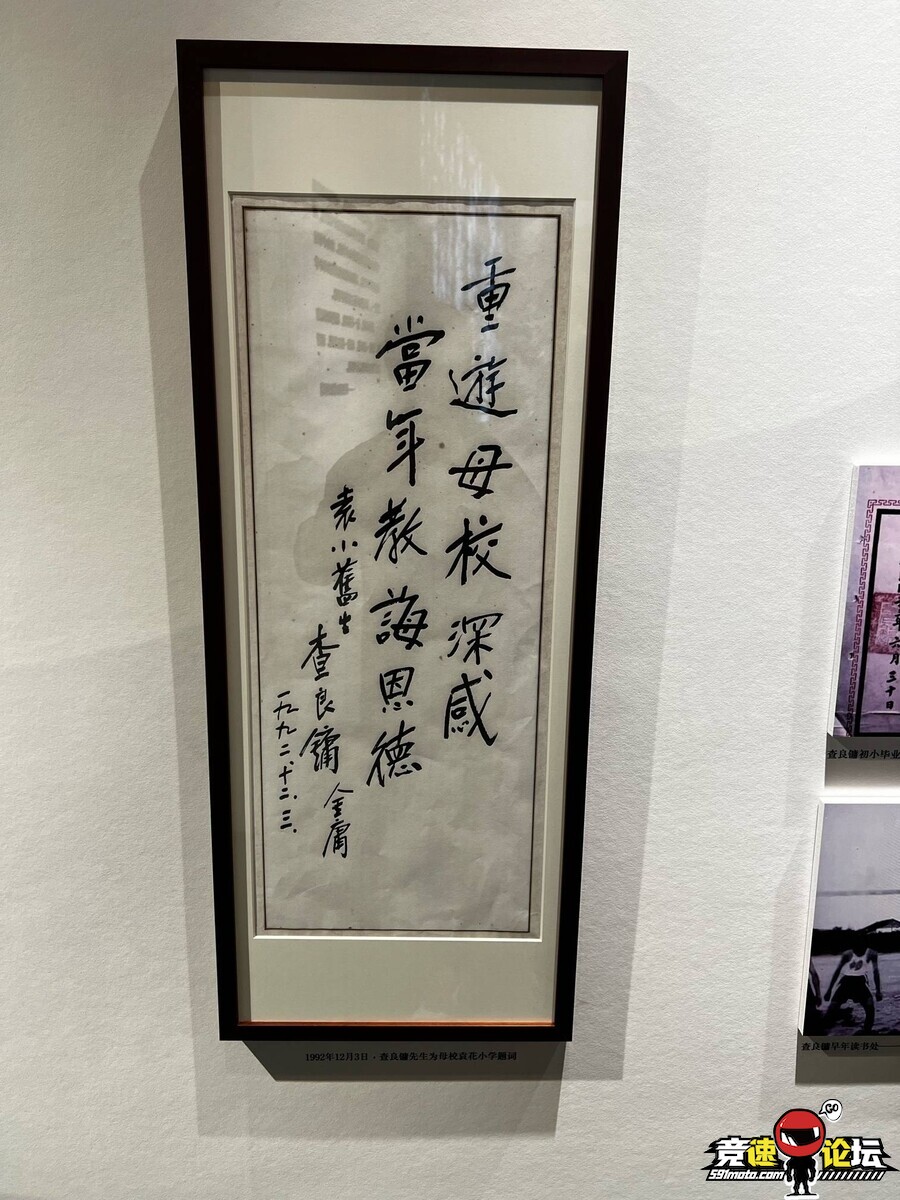 重遊母校深感
當年教誨恩德
袁小舊生
查良鏞 金庸
一九九二、十二、三、
1992年12月3日·查良镛先生为母校袁花小学题词
年六月三十日
查良镛初小毕业
查良镛早年读书处——
GO
竞速论坛
591moto.com